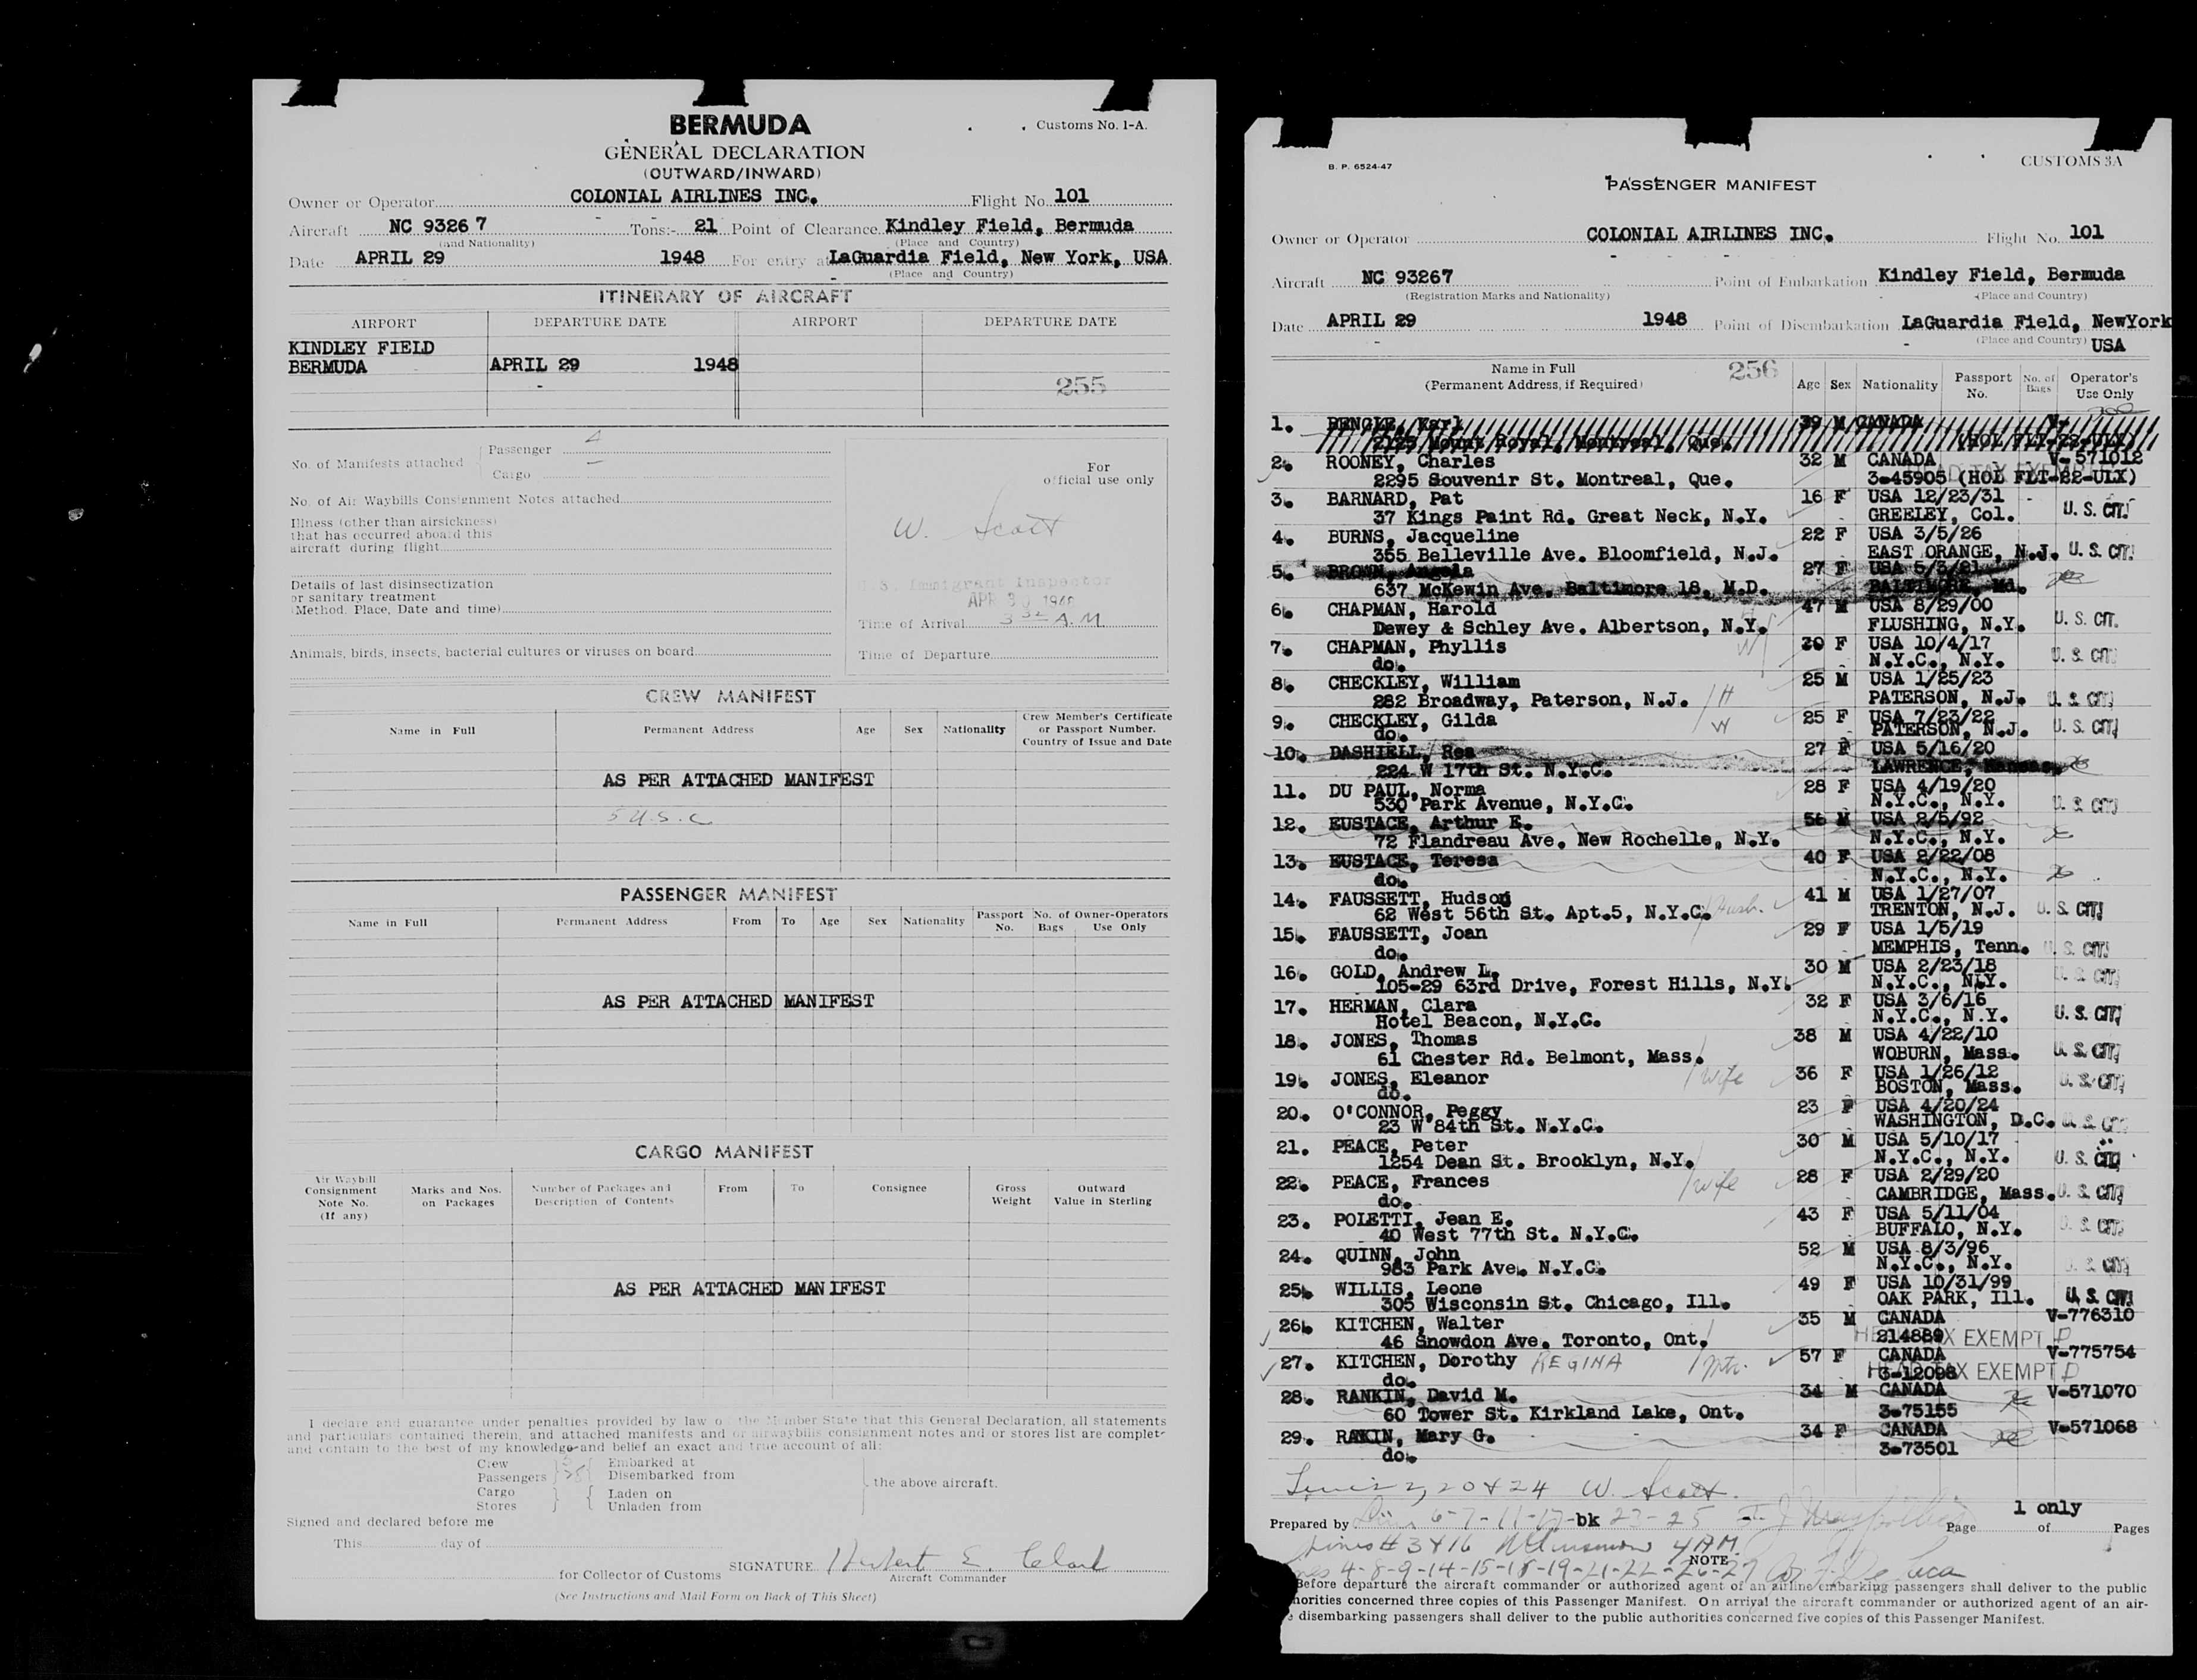 BERMUDA
Customs No. 1-A.
GENERAL DECLARATION
(OUTWARD/INWARD)
Owner or Operator COLONIAL AIRLINES INC. Flight No. 101
Aircraft NC 93267 Tons:- 21 Point of Clearance Kindley Field, Bermuda
(and Nationality) (Place and Country)
Date APRIL 29 1948 For entry at LaGuardia Field, New York, USA
(Place and Country)
ITINERARY OF AIRCRAFT
AIRPORT DEPARTURE DATE AIRPORT DEPARTURE DATE
KINDLEY FIELD
BERMUDA APRIL 29 1948
255
No. of Manifests attached Passenger 4
Cargo –
For
official use only
No. of Air Waybills Consignment Notes attached
Illness (other than airsickness)
that has occurred aboard this
aircraft during flight
W. Scott
Details of last disinsectization
or sanitary treatment
(Method, Place, Date and time)
U.S. Immigrant Inspector
APR 30 1948
Time of Arrival 3 32 A.M.
Animals, birds, insects, bacterial cultures or viruses on board
Time of Departure
CREW MANIFEST
Name in Full Permanent Address Age Sex Nationality Crew Member's Certificate
or Passport Number.
Country of Issue and Date
AS PER ATTACHED MANIFEST
5 U.S.C
PASSENGER MANIFEST
Name in Full Permanent Address From To Age Sex Nationality Passport No. No. of Bags Owner-Operators Use Only
AS PER ATTACHED MANIFEST
CARGO MANIFEST
Air Waybill
Consignment
Note No.
(If any)
Marks and Nos.
on Packages
Number of Packages and
Description of Contents
From To Consignee
Gross
Weight
Outward
Value in Sterling
AS PER ATTACHED MANIFEST
I declare and guarantee under penalties provided by law of the Member State that this General Declaration, all statements
and particulars contained therein, and attached manifests and or airwaybills consignment notes and or stores list are complete
and contain to the best of my knowledge and belief an exact and true account of all:
Crew 5 Embarked at
Passengers 25 Disembarked from
the above aircraft.
Cargo Laden on
Stores Unladen from
Signed and declared before me
This day of
SIGNATURE Hubert E. Clark
for Collector of Customs Aircraft Commander
(See Instructions and Mail Form on Back of This Sheet)
B. P. 6524-47
CUSTOMS 3A
PASSENGER MANIFEST
Owner or Operator COLONIAL AIRLINES INC. Flight No. 101
Aircraft NC 93267 Point of Embarkation Kindley Field, Bermuda
(Registration Marks and Nationality) (Place and Country)
Date APRIL 29 1948 Point of Disembarkation LaGuardia Field, NewYork
(Place and Country) USA
Name in Full 256
(Permanent Address, if Required) Age Sex Nationality Passport No. No. of Bags Operator's Use Only
1. BENGLE, Karl 39 M CANADA V-
2125 Mount Royal, Montreal, Que. (HOL FLT-22-ULX)
2. ROONEY, Charles 32 M CANADA V-571012
2295 Souvenir St. Montreal, Que. 3-45905 (HOL FLT-22-ULX)
HEAD TAX EXEMPT
3. BARNARD, Pat 16 F USA 12/23/31
37 Kings Paint Rd. Great Neck, N.Y. GREELEY, Col. U. S. CIT.
4. BURNS, Jacqueline 22 F USA 3/5/26
355 Belleville Ave. Bloomfield, N.J. EAST ORANGE, N.J. U. S. CIT.
5. BROWN, Angela 27 F USA 5/3/21
637 McKewin Ave. Baltimore 18, M.D. BALTIMORE, Md.
6. CHAPMAN, Harold 47 M USA 8/29/00
Dewey & Schley Ave. Albertson, N.Y. FLUSHING, N.Y. U. S. CIT.
7. CHAPMAN, Phyllis W 30 F USA 10/4/17
do. N.Y.C., N.Y. U. S. CIT
8. CHECKLEY, William 25 M USA 1/25/23
282 Broadway, Paterson, N.J. H PATERSON, N.J. U. S. CIT
9. CHECKLEY, Gilda W 25 F USA 7/23/22
do. PATERSON, N.J. U. S. CIT
10. DASHIELL, Rea 27 F USA 5/16/20
224 W 17th St. N.Y.C. LAWRENCE, Kansas
11. DU PAUL, Norma 28 F USA 4/19/20
530 Park Avenue, N.Y.C. N.Y.C., N.Y. U. S. CIT
12. EUSTACE, Arthur E. 56 M USA 2/5/92
72 Flandreau Ave. New Rochelle, N.Y. N.Y.C., N.Y.
13. EUSTACE, Teresa 40 F USA 2/22/08
do. N.Y.C., N.Y.
14. FAUSSETT, Hudson 41 M USA 1/27/07
62 West 56th St. Apt.5, N.Y.C. Husb. TRENTON, N.J. U. S. CIT
15. FAUSSETT, Joan 29 F USA 1/5/19
do. MEMPHIS, Tenn. U. S. CIT
16. GOLD, Andrew L. 30 M USA 2/23/18
105-29 63rd Drive, Forest Hills, N.Y. N.Y.C., N.Y. U. S. CIT
17. HERMAN, Clara 32 F USA 3/6/16
Hotel Beacon, N.Y.C. N.Y.C., N.Y. U. S. CIT
18. JONES, Thomas 38 M USA 4/22/10
61 Chester Rd. Belmont, Mass. WOBURN, Mass. U. S. CIT
19. JONES, Eleanor wife 36 F USA 1/26/12
do. BOSTON, Mass. U. S. CIT
20. O'CONNOR, Peggy 23 F USA 4/20/24
23 W 84th St. N.Y.C. WASHINGTON, D.C. U. S. CIT
21. PEACE, Peter 30 M USA 5/10/17
1254 Dean St. Brooklyn, N.Y. N.Y.C., N.Y. U. S. CIT
22. PEACE, Frances wife 28 F USA 2/29/20
do. CAMBRIDGE, Mass. U. S. CIT
23. POLETTI, Jean E. 43 F USA 5/11/04
40 West 77th St. N.Y.C. BUFFALO, N.Y. U. S. CIT
24. QUINN, John 52 M USA 8/3/96
983 Park Ave. N.Y.C. N.Y.C., N.Y. U. S. CIT
25. WILLIS, Leone 49 F USA 10/31/99
305 Wisconsin St. Chicago, Ill. OAK PARK, Ill. U. S. CIT
26. KITCHEN, Walter 35 M CANADA V-776310
46 Snowdon Ave. Toronto, Ont. 214889 HEAD TAX EXEMPT P
27. KITCHEN, Dorothy REGINA Mtr. 57 F CANADA V-775754
do. 3-12098 HEAD TAX EXEMPT P
28. RANKIN, David M. 34 M CANADA V-571070
60 Tower St. Kirkland Lake, Ont. 3-75155
29. RAKIN, Mary G. 34 F CANADA V-571068
do. 3-73501
Lines 2, 20 & 24 W. Scott.
1 only
Prepared by Lines 6-7-11-17-bk 23-25 Page of Pages
Lines # 3 & 16 4 AM
4-8-9-14-15-18-19-21-22-26-27
NOTE
Before departure the aircraft commander or authorized agent of an airline embarking passengers shall deliver to the public
horities concerned three copies of this Passenger Manifest. On arrival the aircraft commander or authorized agent of an air-
e disembarking passengers shall deliver to the public authorities concerned five copies of this Passenger Manifest.